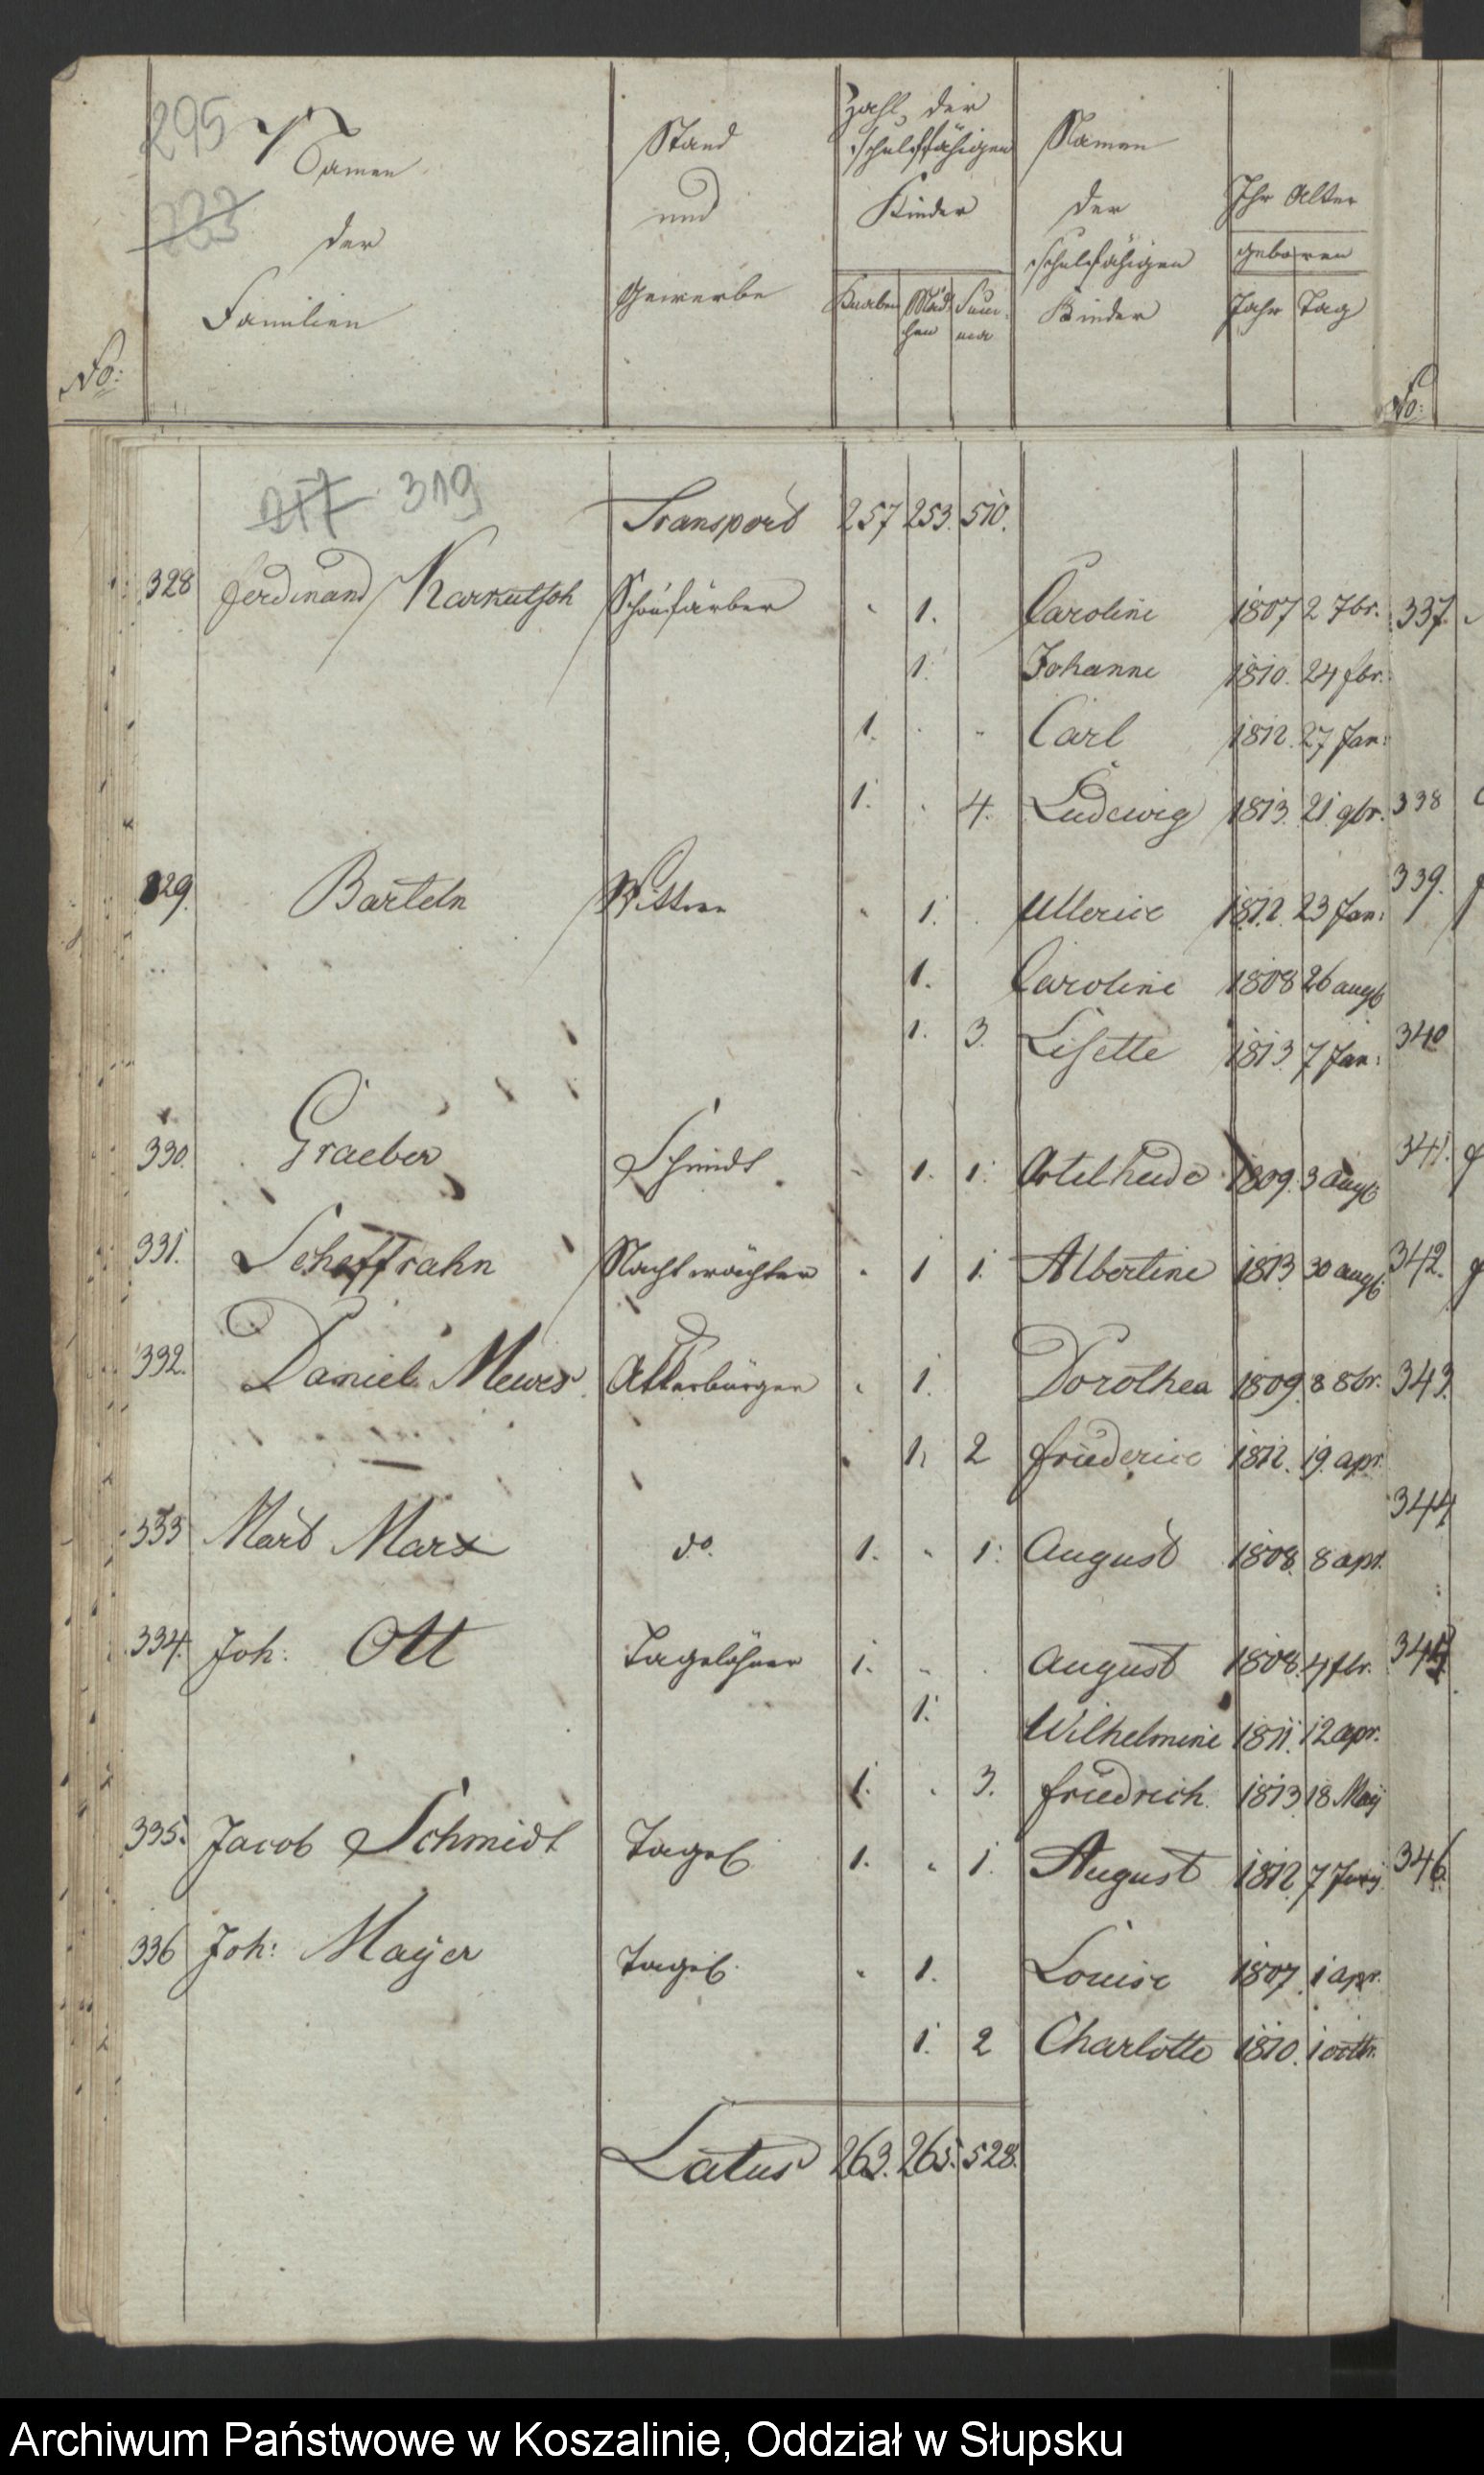 295
Namen
der
Familien
No:
Stand
und
Gewerbe
Zahl der
schulfähigen
Kinder
Knaben Mäd chen Sum: ma
Namen
der
schulfähigen
Kinder
Ihr Alter
geboren
Jahr Tag
No:
217 319
Transport 257 253. 510.
328 Ferdinand Karkutsch Schönfärber " 1. Caroline 1807 2 7br. 337.
1. Johanne 1810. 24 fbr.
1. . " Carl 1812. 27 Jan:
1. . 4. Ludewig 1813. 21. 9br. 338
329. Barteln Wittwe " 1. . Ullerice 1812. 23 Jan: 339.
1. Caroline 1808 26 augt
1. 3. Lisette 1813. 7 Jan: 340
330. Graeber Schmidt " 1. 1. 1809. 3 Augt 341.
331. Scheffrahn Nachtwächter " 1 1. Albertine 1813 30 augt. 342.
332. Daniel Mewes Akkerbürger " 1. Dorothea 1809. 8 8br. 343.
1. 2 Friederice 1812. 19. apr.
344
333 Mart Marx do. 1. " 1. August 1808. 8 apr.
334. Joh: Ott Tagelöhner 1. " . August 1808. 4 fbr. 345
1. Wilhelmine 1811. 12 apr.
1. . 3. Friedrich. 1813 18 May
335. Jacob Schmidt Tagel 1. " 1. August 1812 7 346.
336 Joh: Mayer Tagel. " 1. Louise 1807. 1 apr.
1. 2 Charlotte 1810. 1 octbr.
Latus 263. 265. 528.
Archiwum Państwowe w Koszalinie, Oddział w Słupsku